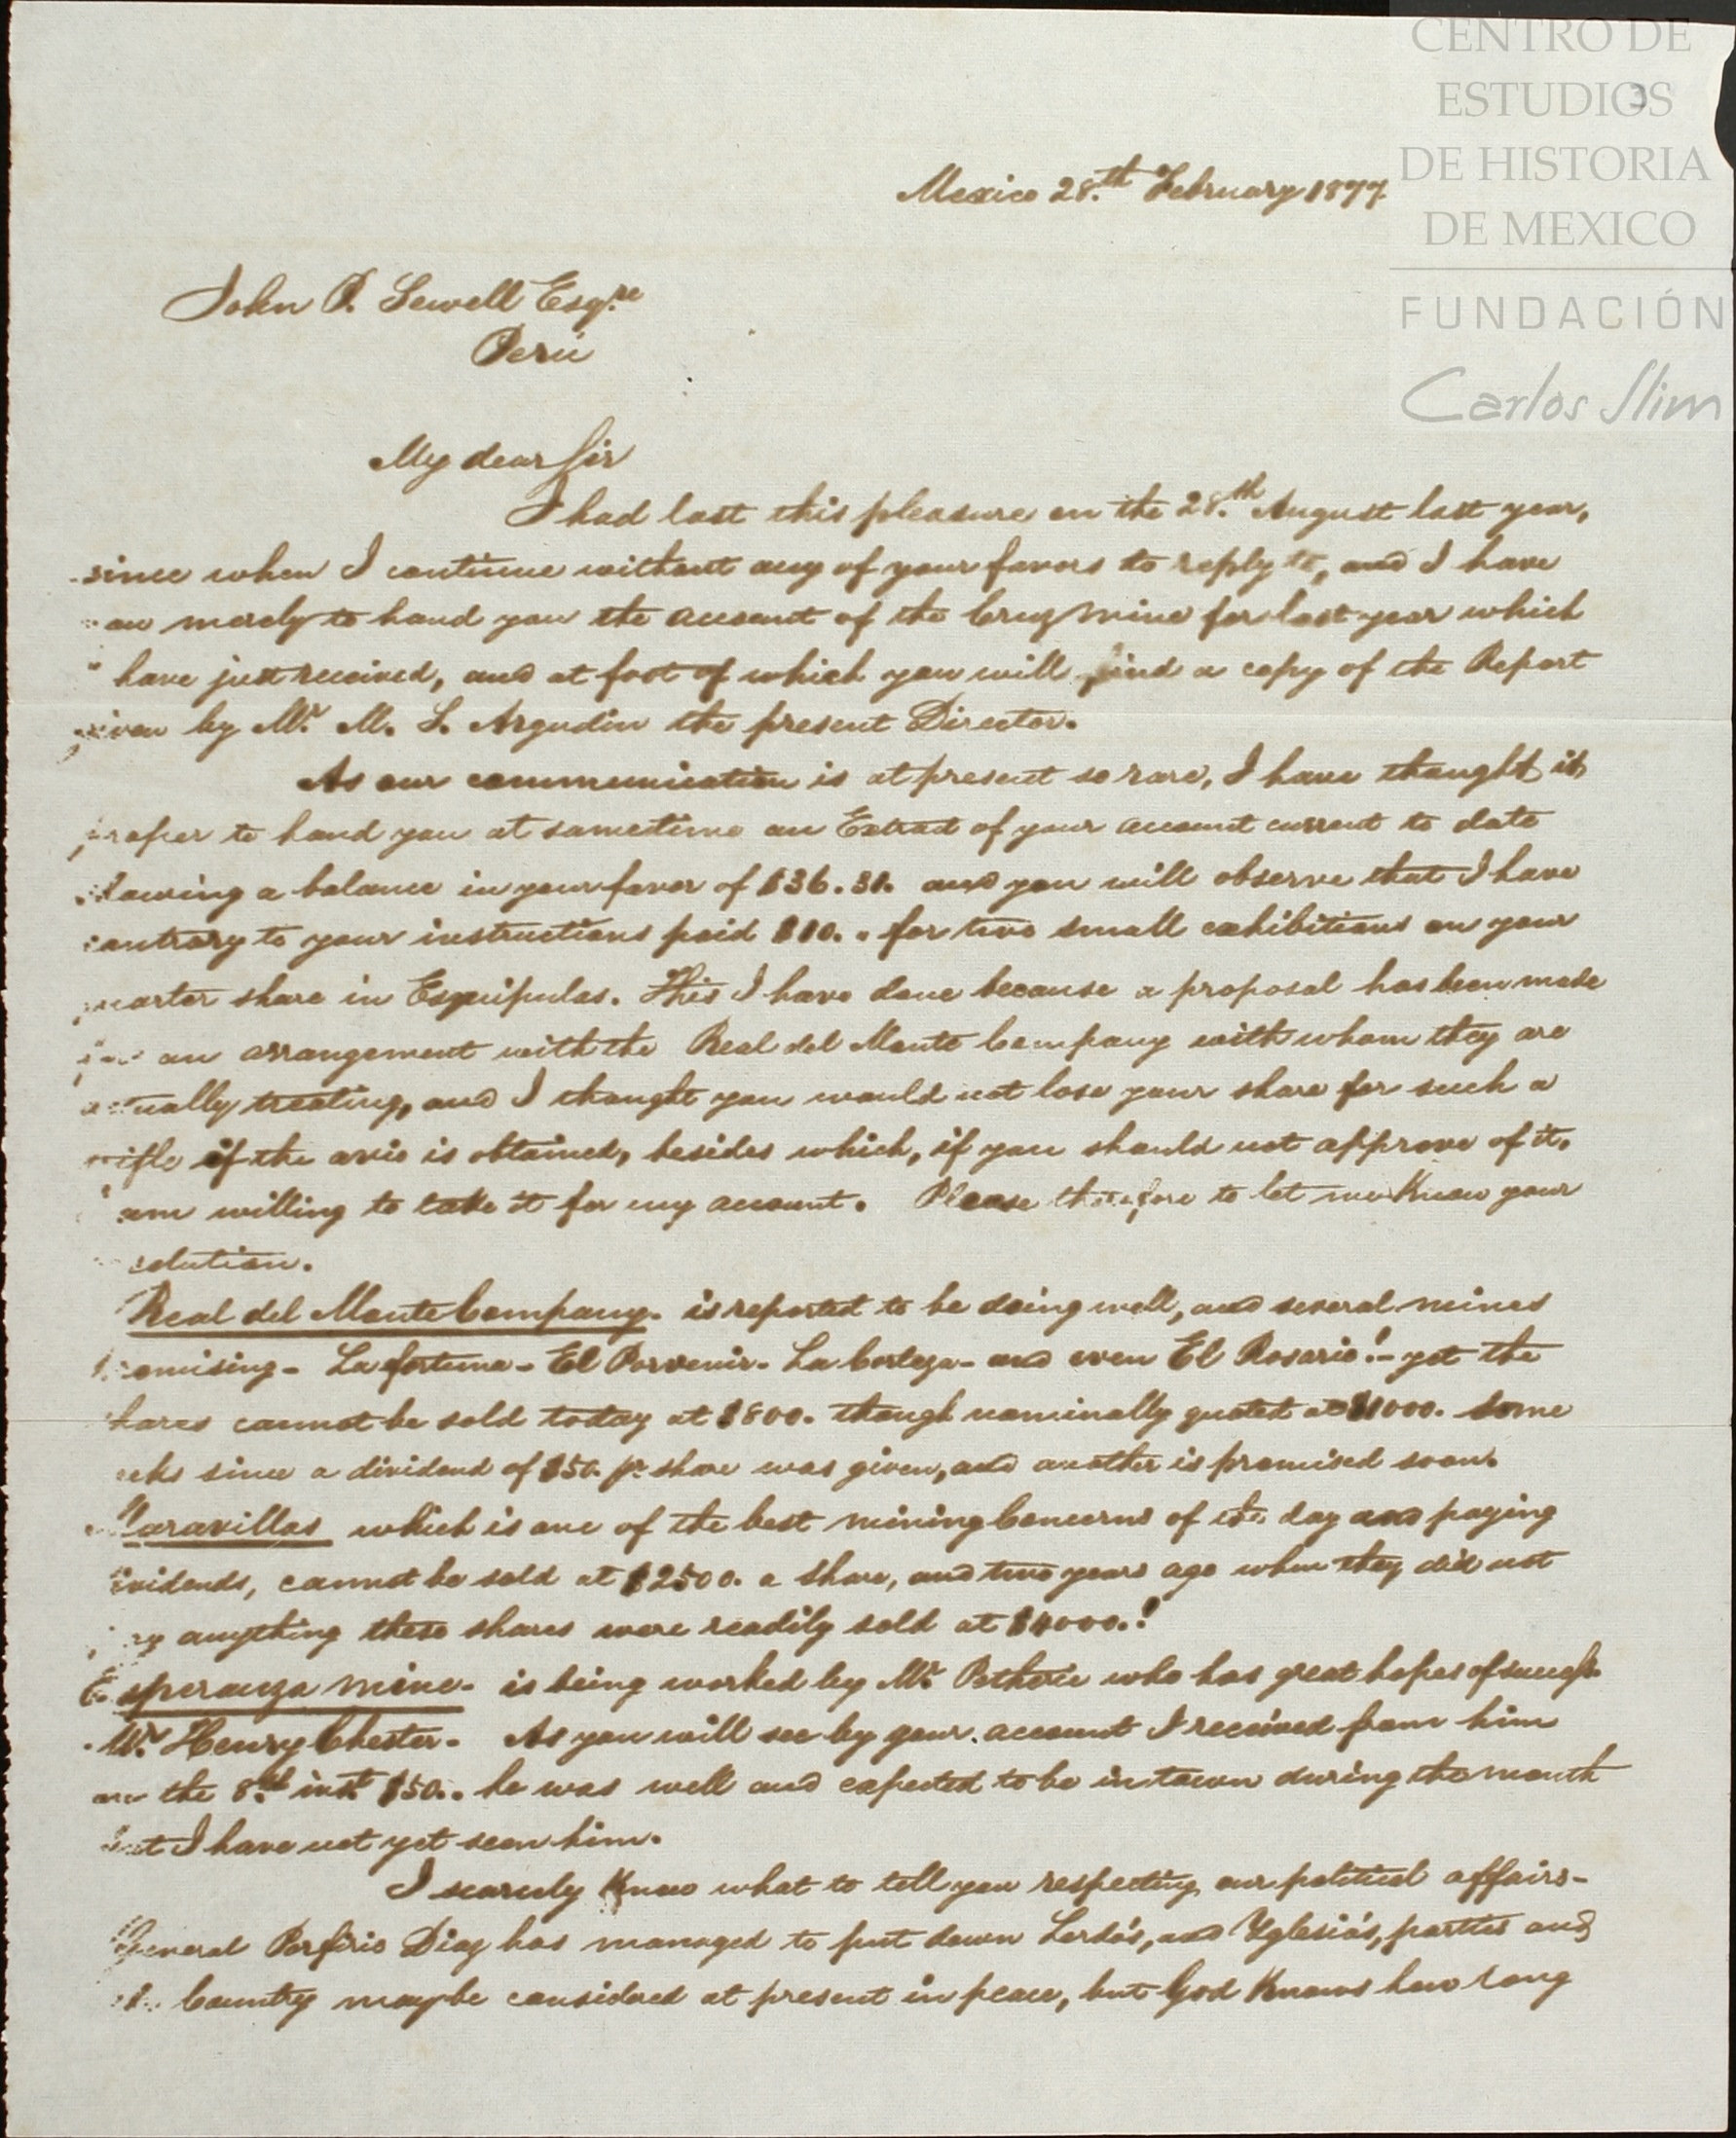 CENTRO DE
ESTUDIOS
DE HISTORIA
DE MEXICO
FUNDACIÓN
Carlos Slim
3
Mexico 28.th February 1877.
John P. Sewell Esqre
Perú
My dear Sir
I had last this pleasure on the 28.th August last year,
since when I continue without any of your favors to reply to, and I have
merely to hand you the account of the Cruz mine for last year which
have just received, and at foot of which you will find a copy of the Report
given by Mr. M. S. Argudin the present Director.
As our communication is at present so rare, I have thought it
proper to hand you at sametime an Extract of your account current to date
showing a balance in your favor of $36.31. and you will observe that I have
contrary to your instructions paid $10.. for two small exhibitions on your
quarter share in Esquipulas. This I have done because a proposal has been made
for an arrangement with the Real del Monte Company with whom they are
actually treating, and I thought you would not lose your share for such a
trifle if the avio is obtained, besides which, if you should not approve of it,
am willing to take it for my account. Please therefore to let me Know your
solution.
Real del Monte Company. is reported to be doing well, and several mines
promising - La fortuna - El Porvenir - La Corteza - and even El Rosario! - yet the
shares cannot be sold today at $800. though nominally quoted at $1000. some
eeks since a dividend of $50. pr. share was given, and another is promised soon.
Maravillas which is one of the best mining Concerns of the day and paying
dividends, cannot be sold at $2500. a share, and two years ago when they did not
pay anything these shares were readily sold at $4000.!
Esperanza mine. is being worked by Mr. who has great hopes of success.
Mr. Henry Chester. As you will see by your account I received from him
on the 8.th inst. $50.. he was well and expected to be in town during the month
but I have not yet seen him.
I scarcely Know what to tell you respecting our political affairs -
General Porfirio Diaz has managed to put down Lerdo's, and Yglesia's, parties and
the Country may be considered at present in peace, but God Knows how long